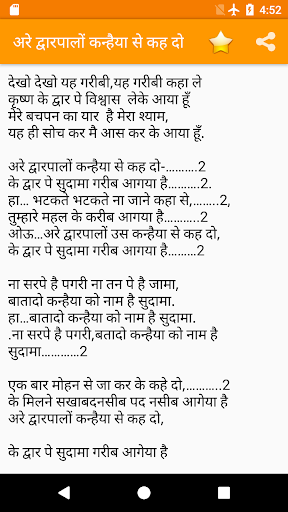 4:52
अरे द्वारपालों कन्हैया से कह दो
देखो देखो यह गरीबी,यह गरीबी कहा ले
कृष्ण के द्वार पे विश्वास  लेके आया हूँ
मेरे बचपन का यार  है मेरा श्याम,
यह ही सोच कर मै आस कर के आया हूँ.
अरे द्वारपालों कन्हैया से कह दो-……….2
के द्वार पे सुदामा गरीब आगया है……….2.
हा… भटकते भटकते ना जाने कहा से,……..2,
तुम्हारे महल के करीब आगया है………..2
ओऊ…अरे द्वारपालों उस कन्हैया से कह दो,
के द्वार पे सुदामा गरीब आगया है………2
ना सरपे है पगरी ना तन पे है जामा,
बातादो कन्हैया को नाम है सुदामा.
हा…बातादो कन्हैया को नाम है सुदामा.
.ना सरपे है पगरी,बतादो कन्हैया को नाम है
सुदामा…………2
एक बार मोहन से जा कर के कहे दो,………..2
के मिलने सखाबदनसीब पद नसीब आगेया है
अरे द्वारपालों कन्हैया से कह दो,
के द्वार पे सुदामा गरीब आगेया है